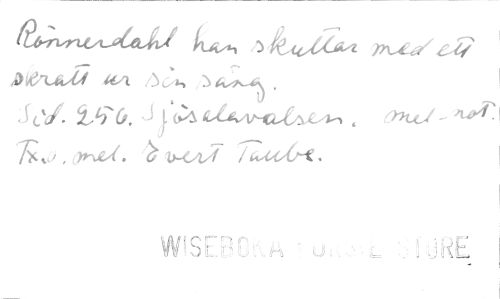 Rönnerdahl han skuttar med ett
skratt ur sin säng.
Sid. 256. Sjösalavalsen. mel-not.
Tx.o. mel. Evert Taube.
WISEBOKA STORE